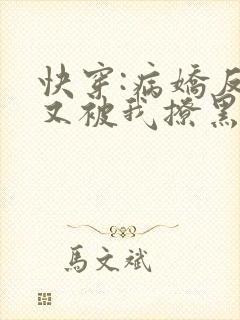 快穿:病嬌反
又被我撩黑
馬文斌